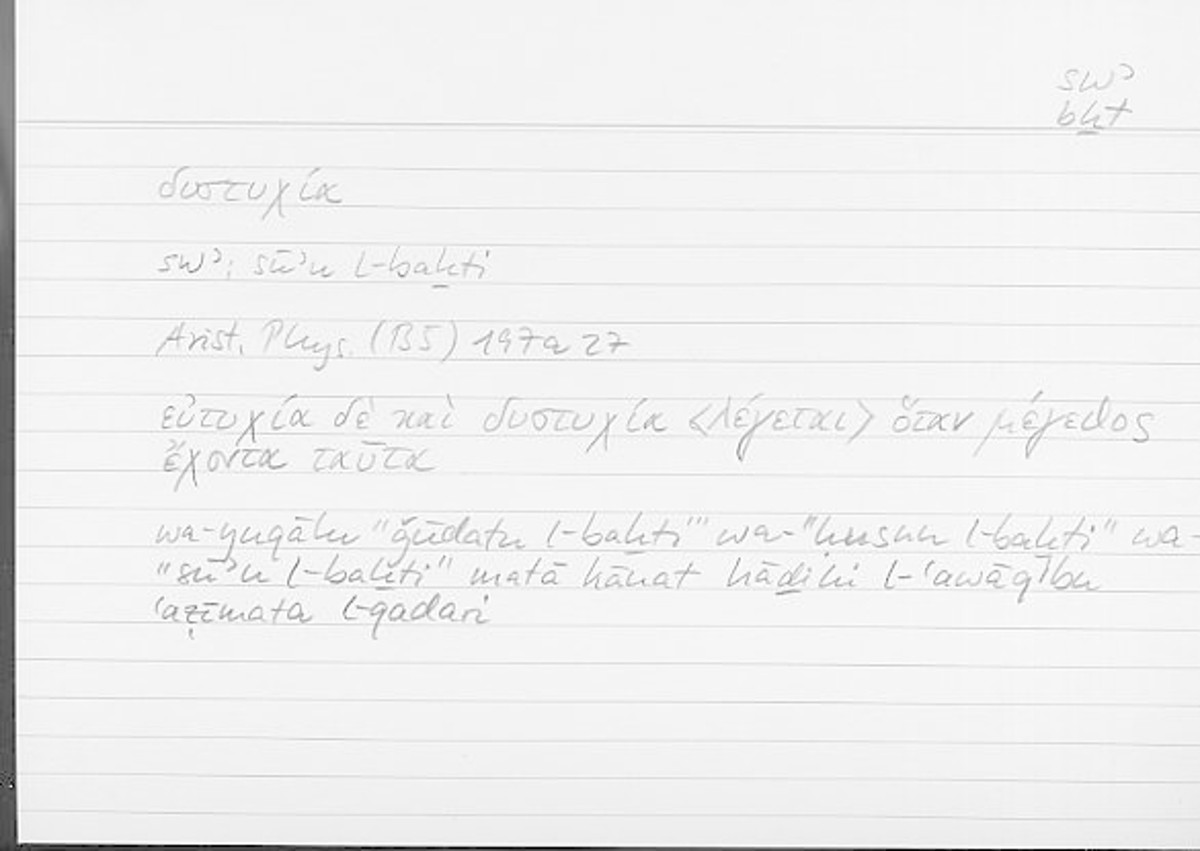 swʾ
bẖt
δυστυχία
swʾ; sūʾu l-baẖti
Arist. Phys. (B5) 197a 27
εὐτυχία δὲ καὶ δυστυχία <λέγεται> ὅταν μέγεθος
ἔχοντα ταῦτα
wa-yuqālu "ǧūdatu l-baẖti" wa-"ḥusnu l-baẖti" wa-
"sūʾu l-baẖti" matā kānat hāḏihi l-ʿawāqibu
ʿaẓīmata l-qadari